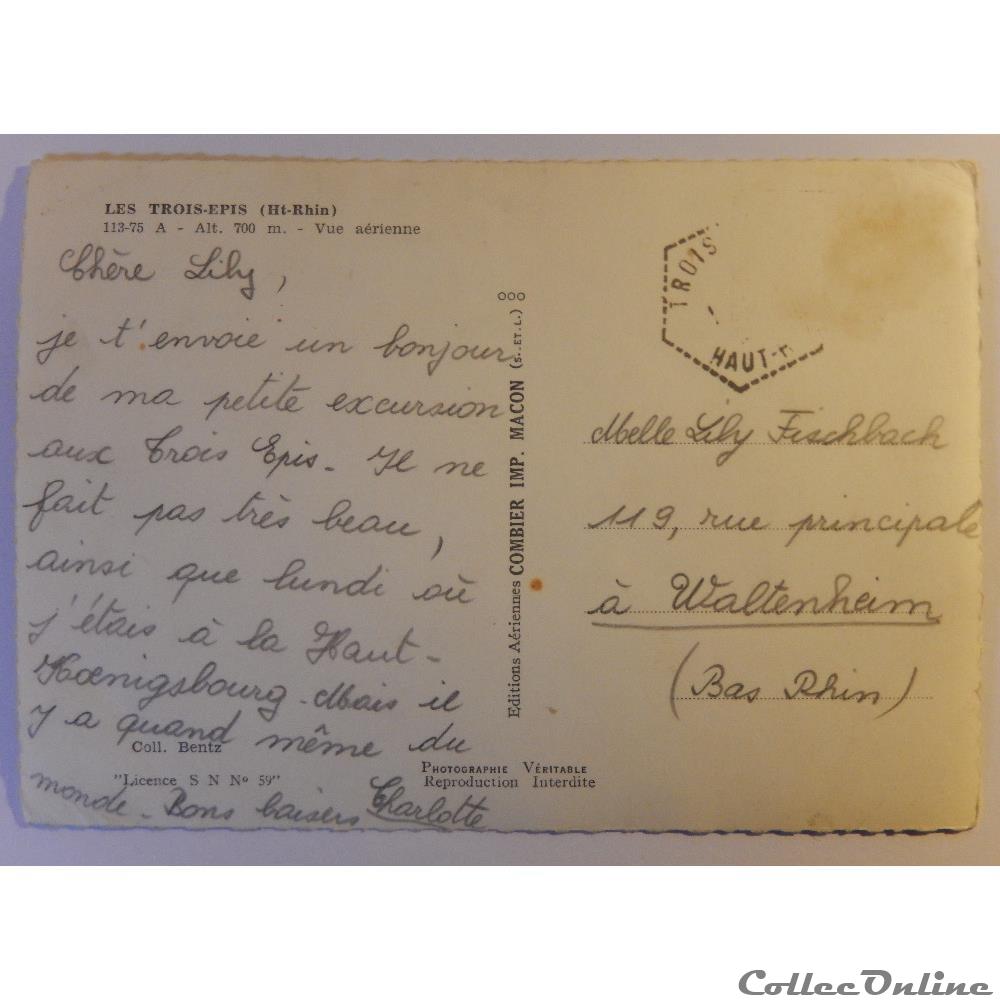 LES TROIS-EPIS (Ht-Rhin)
113-75 A - Alt. 700 m. - Vue aérienne
Chère Lily,
je t'envoie un bonjour
de ma petite excursion
aux Trois Epis. Il ne
fait pas très beau,
ainsi que lundi où
j'étais à la Haut-
Kœnigsbourg. Mais il
y a quand même du
Coll. Bentz
"Licence S N No 59"
monde. Bons baisers Charlotte
Editions Aériennes COMBIER IMP. MACON (S.-ET.L.) ooo
PHOTOGRAPHIE VÉRITABLE
Reproduction Interdite
TROIS
HAUT-
Melle Lily Fischbach
119, rue principale
à Waltenheim
(Bas Rhin)
CollecOnline